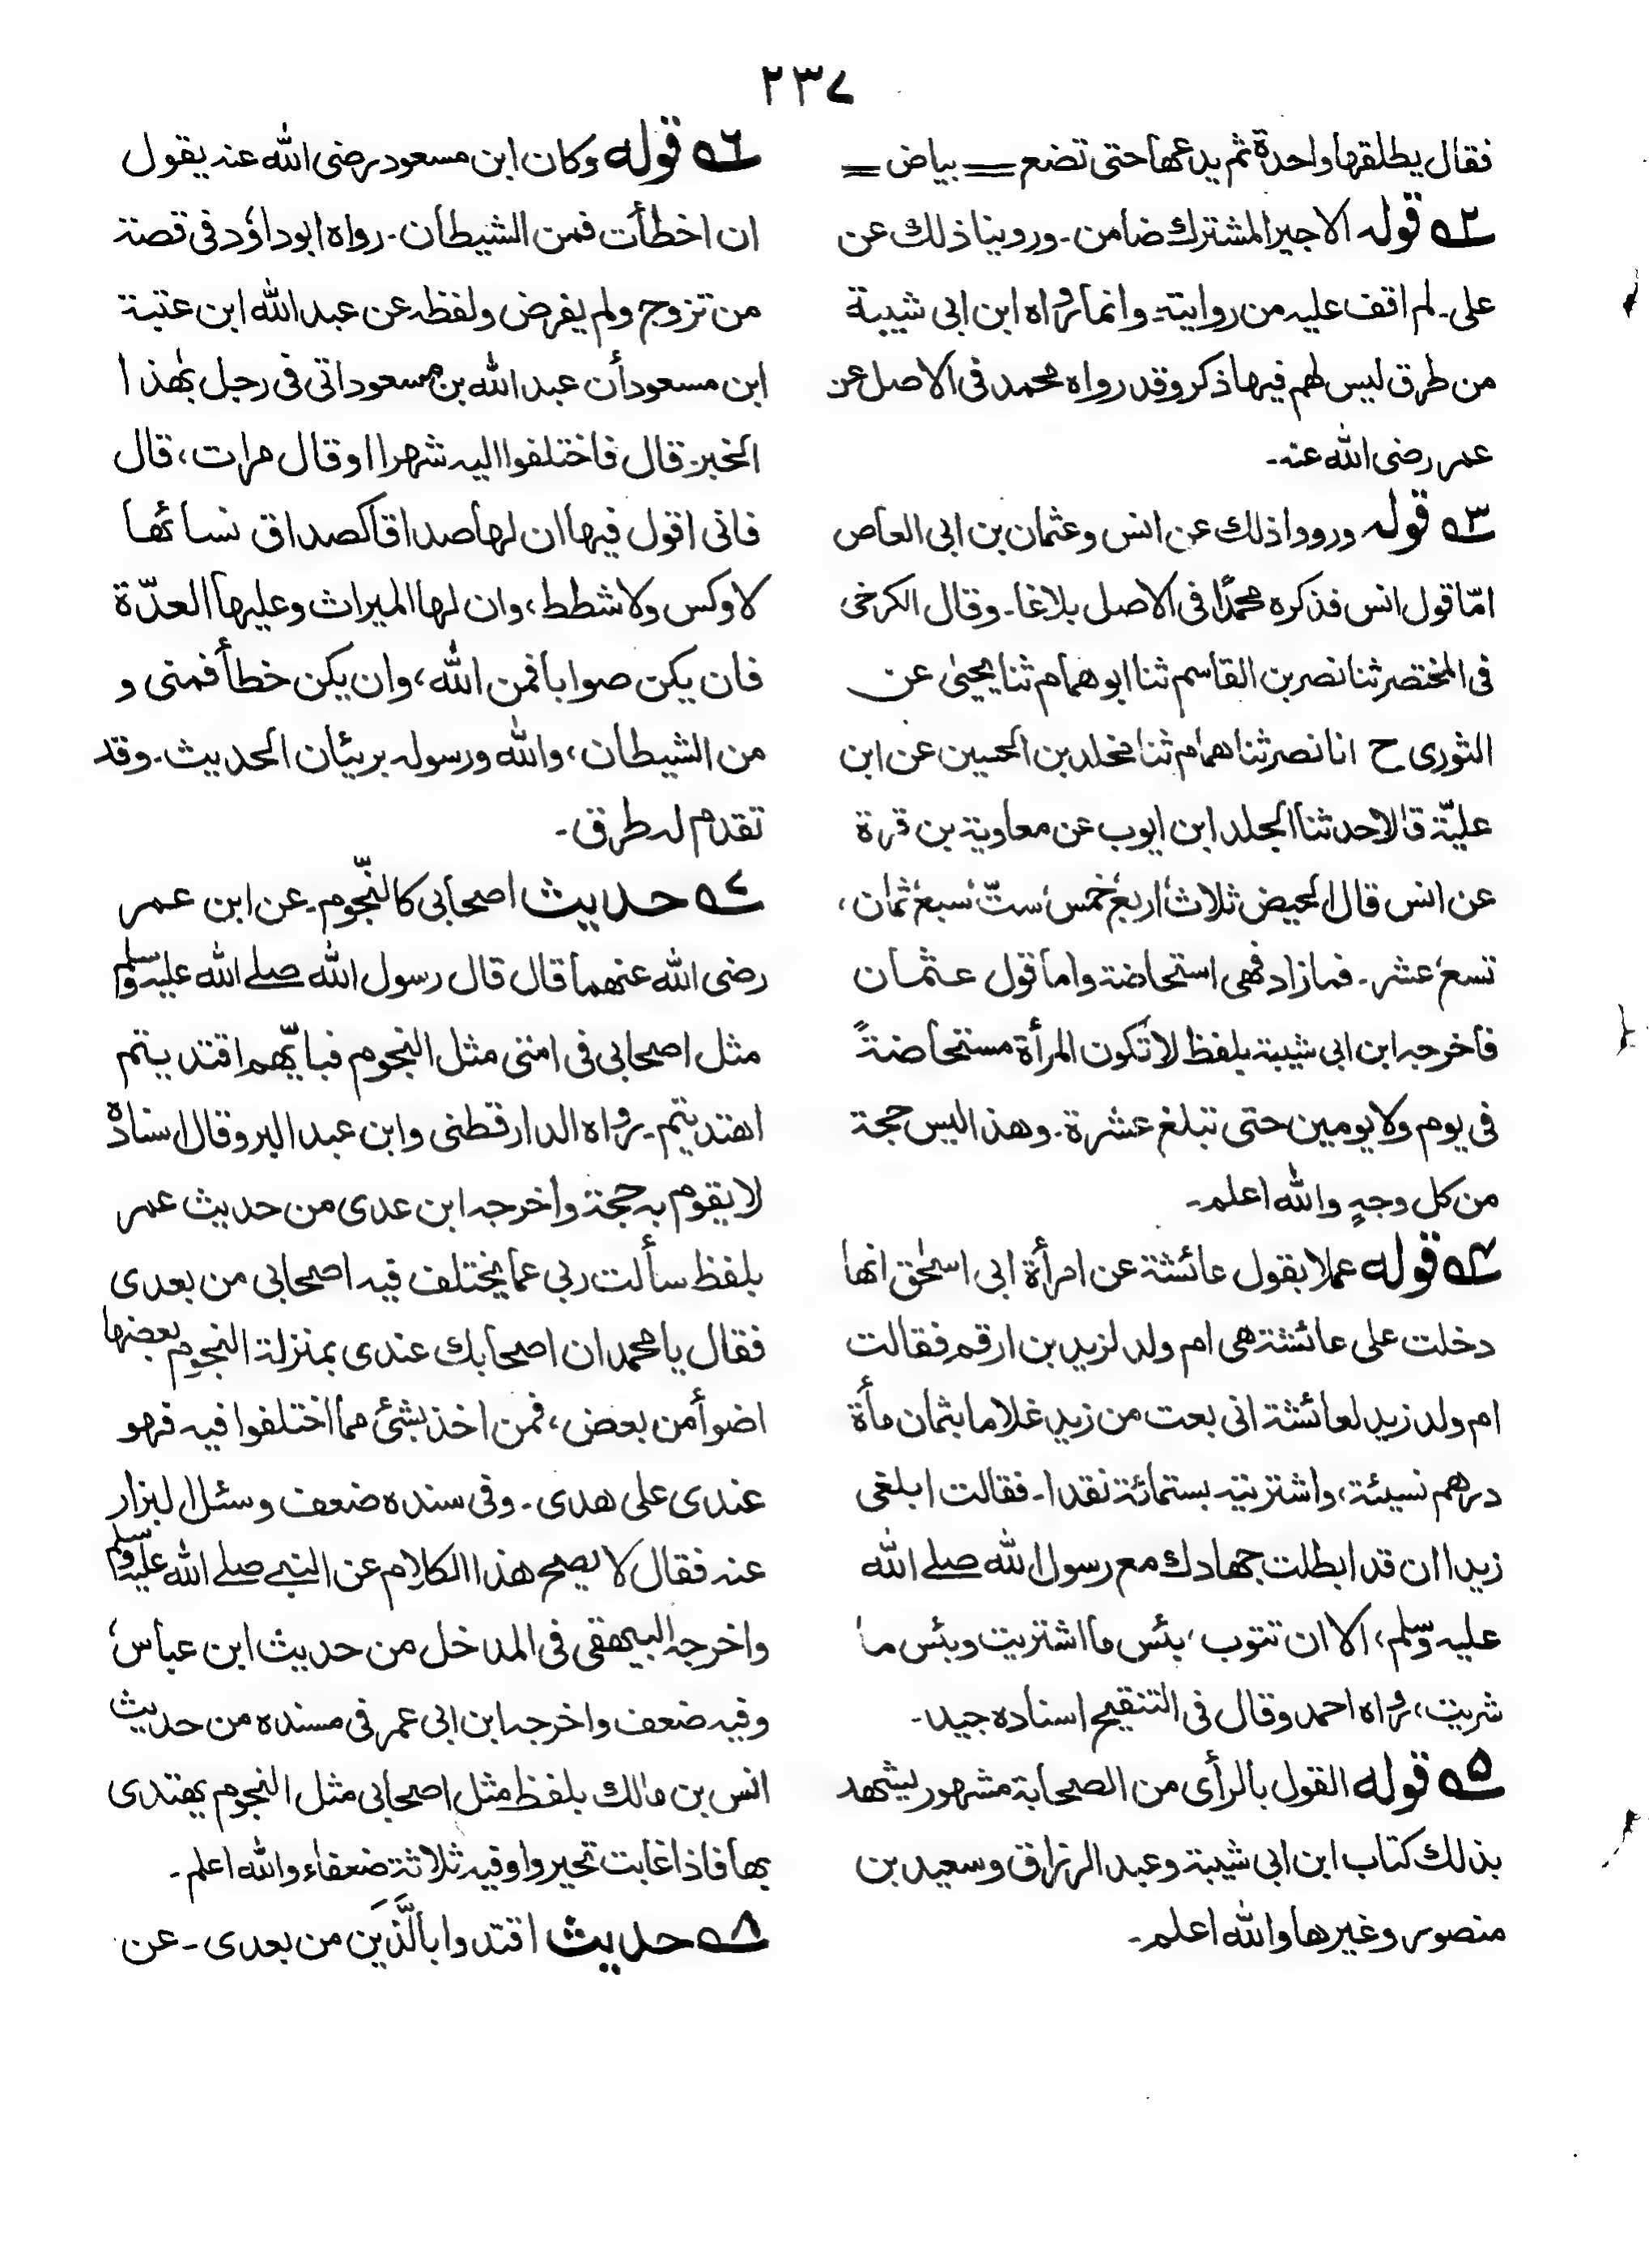 ٢٣٧
فقال يطلقها واحدة ثم يدعها حتى تضع = بياض =
٢ قوله الاجير المشترك ضامن ۔ وروينا ذلك عن
على ۔ لم اقف عليه من روايته ۔ وانما رواه ابن ابى شيبة
من طرق ليس لهم فيها ذكر وقد رواه محمد فى الاصل عن
عمر رضى الله عنه ۔
٣ قوله ورووا ذلك عن انس وعثمان بن ابى العاص
امّا قول انس فذكره محمدًا فى الاصل بلاغا ۔ وقال الكرخى
فى المختصر ثنا نصر بن القاسم ثنا ابو همام ثنا يحيىٰ عن
الثورى ح انا نصر ثنا همام ثنا مخلد بن الحسين عن ابن
عليّة قالا حدثنا الجلد ابن ايوب عن معاوية بن قرة
عن انس قال الحيض ثلاث، اربع، خمس، ستّ، سبع، ثمان،
تسع، عشر ۔ فما زاد فهى استحاضة واما قول عثمان
فاخرجه ابن ابى شيبة بلفظ لا تكون المرأة مستحاضةً
فى يوم ولا يومين حتى تبلغ عشرة ۔ وهذا ليس حجة
من كل وجهٍ والله اعلم ۔
٤ قوله عملا بقول عائشة عن امرأة ابى اسحٰق انها
دخلت على عائشة هى ام ولد لزيد بن ارقم فقالت
ام ولد زيد لعائشة انى بعت من زيد غلاما بثمان مأة
درهم نسيئة، واشتريته بستمائة نقدا ۔ فقالت ابلغى
زيدا ان قد ابطلت جهادك مع رسول الله صلے الله
عليه وسلم، الا ان تتوب، بئس ما اشتريت وبئس ما
شريت، رواه احمد وقال فى التنقيح اسناده جيد ۔
٥ قوله القول بالرأى من الصحابة مشهور ليشهد
بذلك كتاب ابن ابى شيبة وعبد الرزاق وسعيد بن
منصور وغيرها والله اعلم ۔
٦ قوله وكان ابن مسعود رضى الله عنه يقول
ان اخطأت فمن الشيطان ۔ رواه ابو داؤد فى قصة
من تزوج ولم يفرض ولفظه عن عبد الله ابن عتبة
ابن مسعود أن عبد الله بن مسعود اتى فى رجل بهٰذا
الخبر ۔ قال فاختلفوا اليه شهرا او قال مرات، قال
فانى اقول فيها ان لها صداقا كصداق نسائها
لا وكس ولا شطط، وان لها الميراث وعليها العدّة
فان يكن صوابا فمن الله، وان يكن خطأ فمنى و
من الشيطان، والله ورسوله بريئان الحديث ۔ وقد
تقدم له طرق ۔
٧ حديث اصحابى كالنّجوم ۔ عن ابن عمر
رضى الله عنهما قال قال رسول الله صلے الله عليه وسلم
مثل اصحابى فى امتى مثل النجوم فبايّهم اقتديتم
اهتديتم ۔ رواه الدارقطنى وابن عبد البر وقال اسناده
لا يقوم به حجة واخرجه ابن عدى من حديث عمر
بلفظ سألت ربى عما يختلف فيه اصحابى من بعدى
فقال يا محمد ان اصحابك عندى بمنزلة النجوم بعضها
اضوأ من بعض، فمن اخذ بشئ مما اختلفوا فيه فهو
عندى على هدى ۔ وفى سنده ضعف وسئل البزار
عنه فقال لا يصح هذا الكلام عن النبى صلے الله عليه وسلم
واخرجه البيهقى فى المدخل من حديث ابن عباس،
وفيه ضعف واخرجه ابن ابى عمر فى مسنده من حديث
انس بن مالك بلفظ مثل اصحابى مثل النجوم يهتدى
بها فاذا غابت تحيروا وفيه ثلاثة ضعفاء والله اعلم ۔
٨ حديث اقتدوا بالَّذَين من بعدى ۔ عن